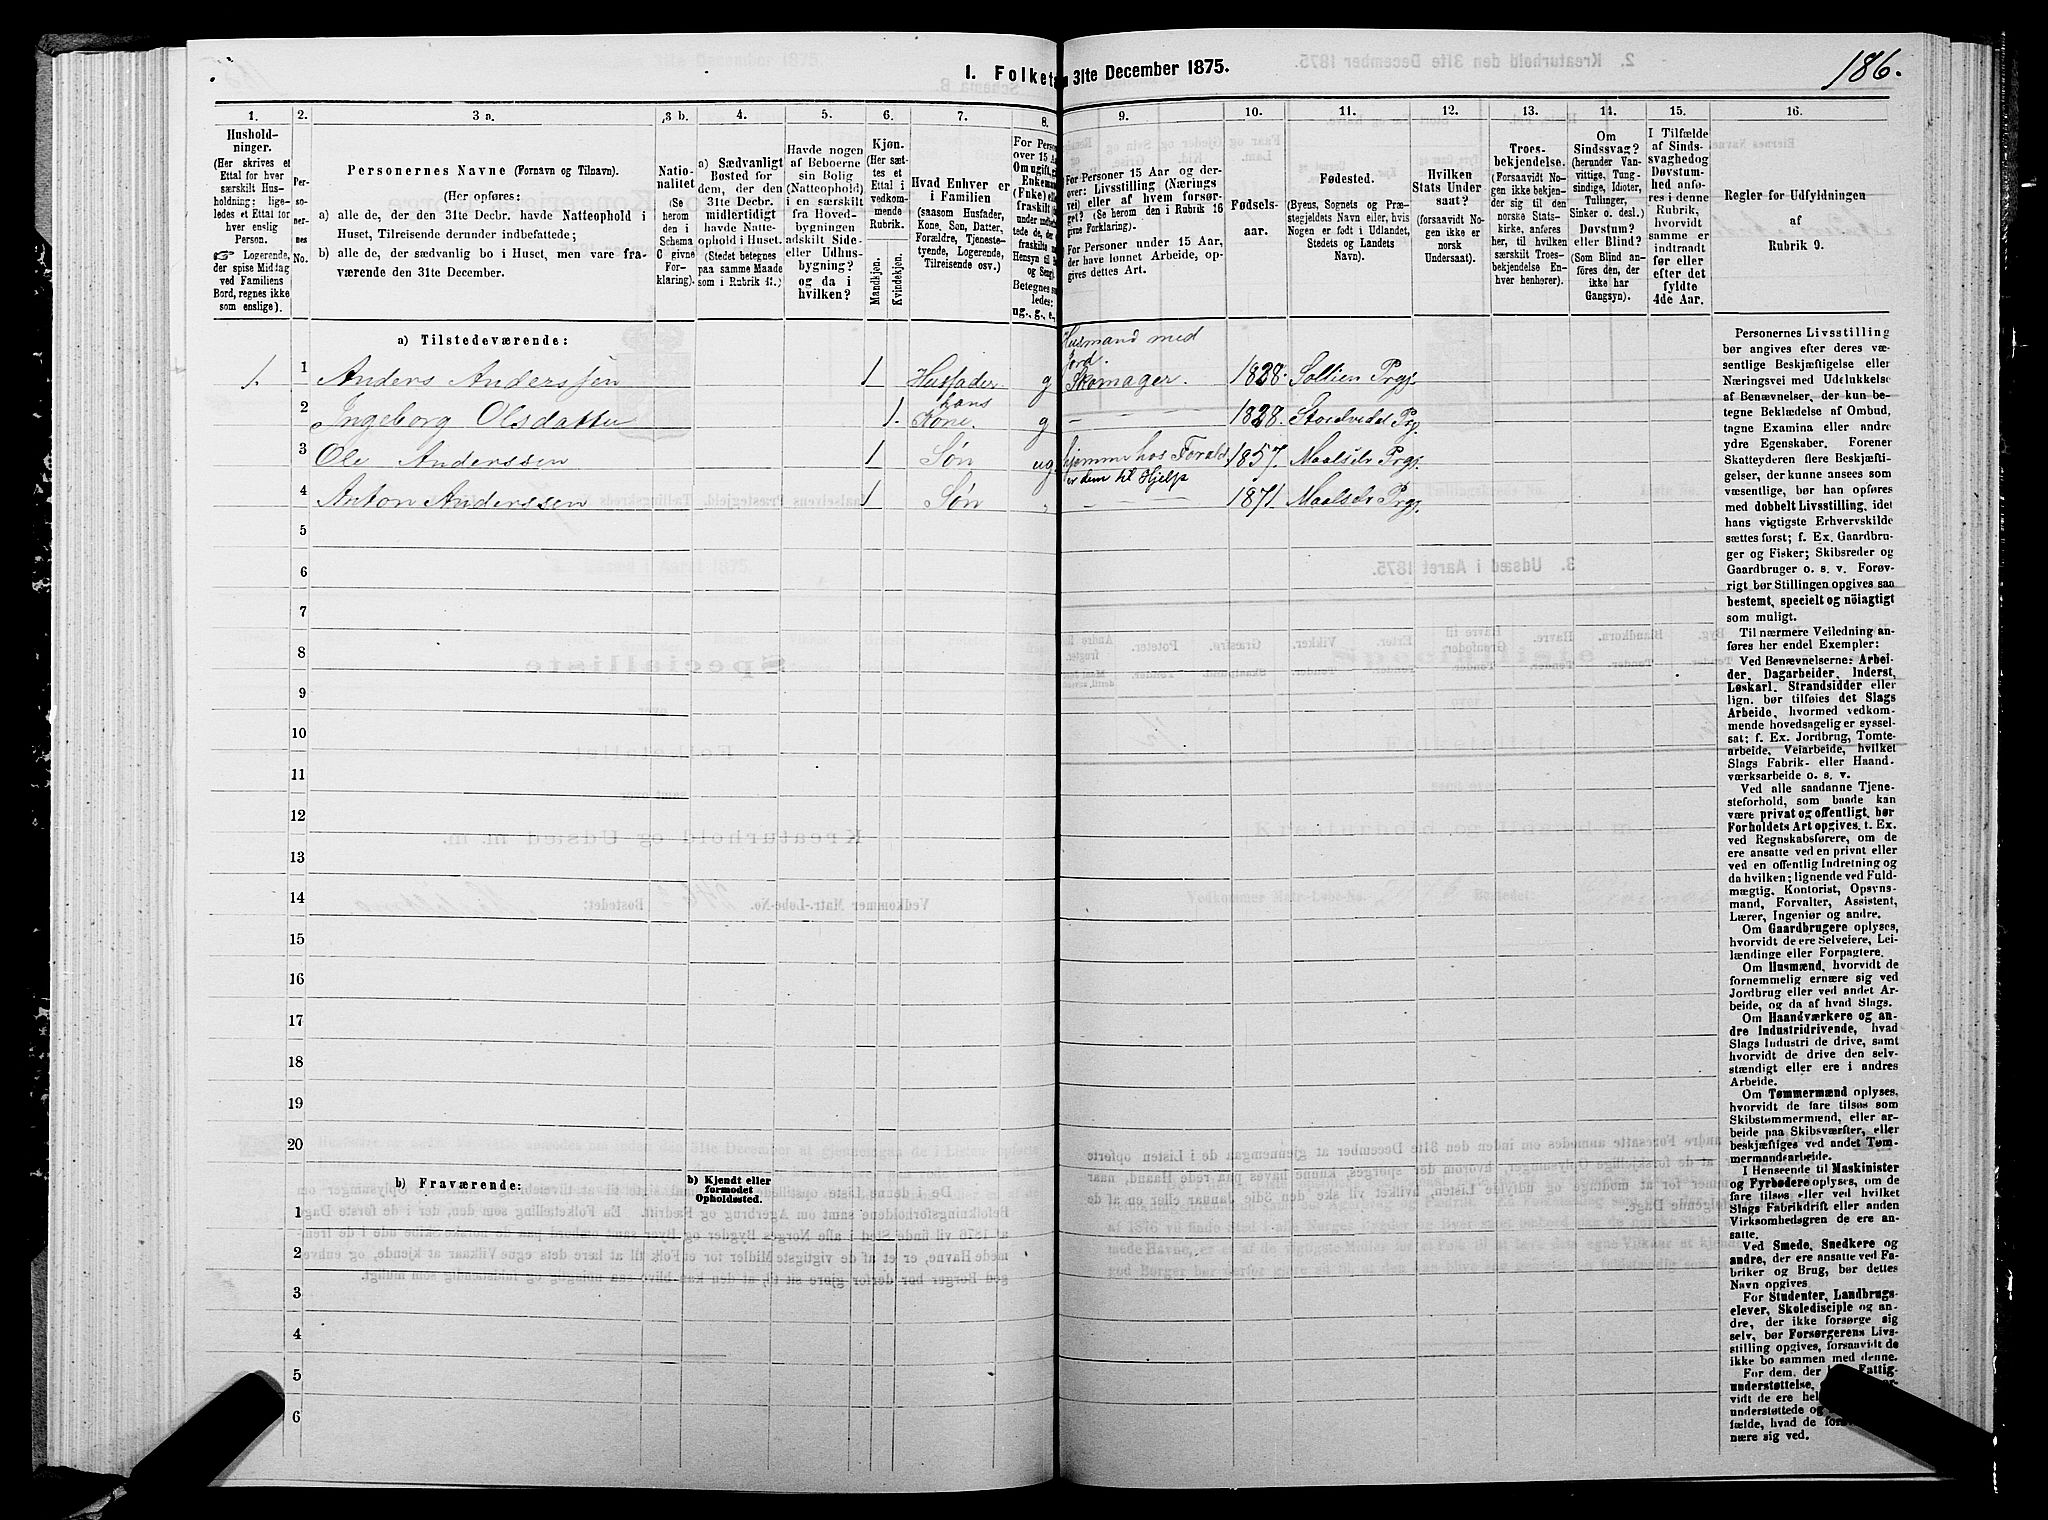 186.
I. Folket
31te December 1875.
1.
Hushold-
ninger.
(Her skrives et
Ettal for hver
særskilt Hus-
holdning; lige-
ledes et Ettal for
hver enslig
Person.
☞ Logerende,
der spise Middag
ved Familiens
Bord, regnes ikke
som enslige).
2.
Per-
so-
ner-
nes
No.
3 a.
Personernes Navne (Fornavn og Tilnavn).
(Her opføres:
a) alle de, der den 31te Decbr. havde Natteophold i
Huset, Tilreisende derunder indbefattede;
b) alle de, der sædvanlig bo i Huset, men vare fra-
værende den 31te December.
3 b.
Natio-
nalitet
(Se
herom
den i
Schema
C givne
For-
klaring).
4.
a) Sædvanligt
Bosted for
dem, der den
31te Decbr.
midlertidigt
havde Natte-
ophold i Huset.
(Stedet betegnes
paa samme Maade
som i Rubrik 11.)
5.
Havde nogen
af Beboerne
sin Bolig
(Natteophold)
i en særskilt
fra Hoved-
bygningen
adskilt Side-
eller Udhus-
bygning?
og da i
hvilken?
6.
Kjøn.
(Her sæt-
tes et
Ettal i
vedkom-
mende
Rubrik.
Mandkjøn.
Kvindekjøn.
7.
Hvad Enhver er
i Familien
(saasom Husfader,
Kone, Søn, Datter,
Forældre, Tjeneste-
tyende, Logerende,
Tilreisende osv.)
8.
For Perso
over 15 Aa
Om ugift, gi
Enkema
(Fnke) e
fraskilt
9.
For Personer 15 Aar og der-
over: Livsstilling (Nærings
vei) eller af hvem forsør-
get? (Se herom den i Rubrik 16
givne Forklaring).
For Personer under 15 Aar,
der have lønnet Arbeide, op-
gives dettes Art.
10.
Fødsels-
aar.
11.
Fødested.
(Byens, Sognets og Præ-
stegjeldets Navn eller, hvis
Nogen er født i Udlandet,
Stedets og Landets
Navn).
12.
Hvilken
Stats Under
saat?
(forsaavidt No-
gen ikke er
norsk
Undersaat).
13.
Troes-
bekjendelse.
(Forsaavidt No-
gen ikke bekjen-
der sig til den
norske Stats-
kirke, anfø-
res her, til hvilken
særskilt Troes-
bekjendelse En-
hver henhører).
14.
Om
Sindssvag?
(herunder Van-
vittige, Tung-
sindige, Idioter,
Tullinger,
Sinker o. desl.)
Døvstum?
eller Blind?
(Som Blind an-
føres den, der
ikke har
Gangsyn).
15.
I Tilfælde
af Sinds-
svaghed og
Døvstum-
hed anfø-
res i denne
Rubrik,
hvorvidt
samme er
indtraadt
før eller
efter det
fyldte
4de Aar.
16.
Regler for Udfyldningen
af
Rubrik 9.
a) Tilstedeværende:
Husmand med
Jord.
1. 1 Anders Anderssen 1 Husfader g Skomager. 1828. Sollien Prgj.
hans
2 Ingeborg Olsdatter 1. Kone. g - 1828. Storelvedal Prg.
3 Ole Anderssen 1 Søn ug. hjemme hos Foræld. 1857. Maalselv Prgj.
er dem til Hjelp
4 Anton Anderssen 1 Søn - 1871. Maalselv Prgj.
5
6
7
8
9
10
11
12
13
14
15
16
17
18
19
20
b) Fraværende:
b) Kjendt eller
formodet
Opholdssted.
1
2
3
4
5
6
Personernes Livsstilling
bør angives efter deres væ-
sentlige Beskjæftigelse eller
Næringsvei med Udelukkelse
af Benævnelser, der kun be-
tegne Beklædelse af Ombud,
tagne Examina eller andre
ydre Egenskaber. Forener
Skatteyderen flere Beskjæfti-
gelser, der kunne ansees som
væsentlige, bør han opføres
med dobbelt Livsstilling, idet
hans vigtigste Erhvervskilde
sættes først; f. Ex. Gaardbru-
ger og Fisker; Skibsreder og
Gaardbruger o. s. v. Forøv-
rigt bør Stillingen opgives saa
bestemt, specielt og nöiagtigt
som muligt.
Til nærmere Veiledning an-
føres her endel Exempler:
Ved Benævnelserne: Arbei-
der, Dagarbeider, Inderst,
Løskarl, Strandsidder eller
lign. bør tilføies det Slags
Arbeide, hvormed vedkom-
mende hovedsagelig er syssel-
sat; f. Ex. Jordbrug, Tomte-
arbeide, Veiarbeide, hvilket
Slags Fabrik- eller Haand-
værksarbeide o. s. v.
Ved alle saadanne Tjene-
steforhold, som baade kan
være privat og offentligt, bør
Forholdets Art opgives, t. Ex.
ved Regnskabsførere, om de
ere ansatte ved en privat eller
ved en offentlig Indretning og
da hvilken; lignende ved Fuld-
mægtig, Kontorist, Opsyns-
mand, Forvalter, Assistent,
Lærer, Ingeniør og andre.
Om Gaardbrugere oplyses,
hvorvidt de ere Selveiere, Lei-
lændinge eller Forpagtere.
Om Husmænd, hvorvidt de
fornemmelig ernære sig ved
Jordbrug eller ved andet Ar-
beide, og da af hvad Slags.
Om Haandværkere og an-
dre Industridrivende, hvad
Slags Industri de drive, samt
hvorvidt de drive den selv-
stændigt eller ere i andres
Arbeide.
Om Tømmermænd oplyses,
hvorvidt de fare tilsøs som
Skibstømmermænd, eller ar-
beide paa Skibsværfter, eller
beskjæftiges ved andet Tøm-
mermandsarbeide.
I Henseende til Maskinister
og Fyrbødere oplyses, om de
fare tilsøs eller ved hvilket
Slags Fabrikdrift eller anden
Virksomhedsgren de ere an-
satte.
Ved Smede, Snedkere og
andre, der ere ansatte ved Fa-
briker og Brug, bør dettes
Navn opgives.
For Studenter, Landbrugs-
elever, Skoledisciple og an-
dre, der ikke forsørge sig
selv, bør Forsørgerens Livs-
stilling opgives, forsaavidt de
ikke bo sammen med denne.
For dem, der Fattig-
understøttelse,
vidt de ere hel
understøttede og
fælde, hvad de
nære sig ved.